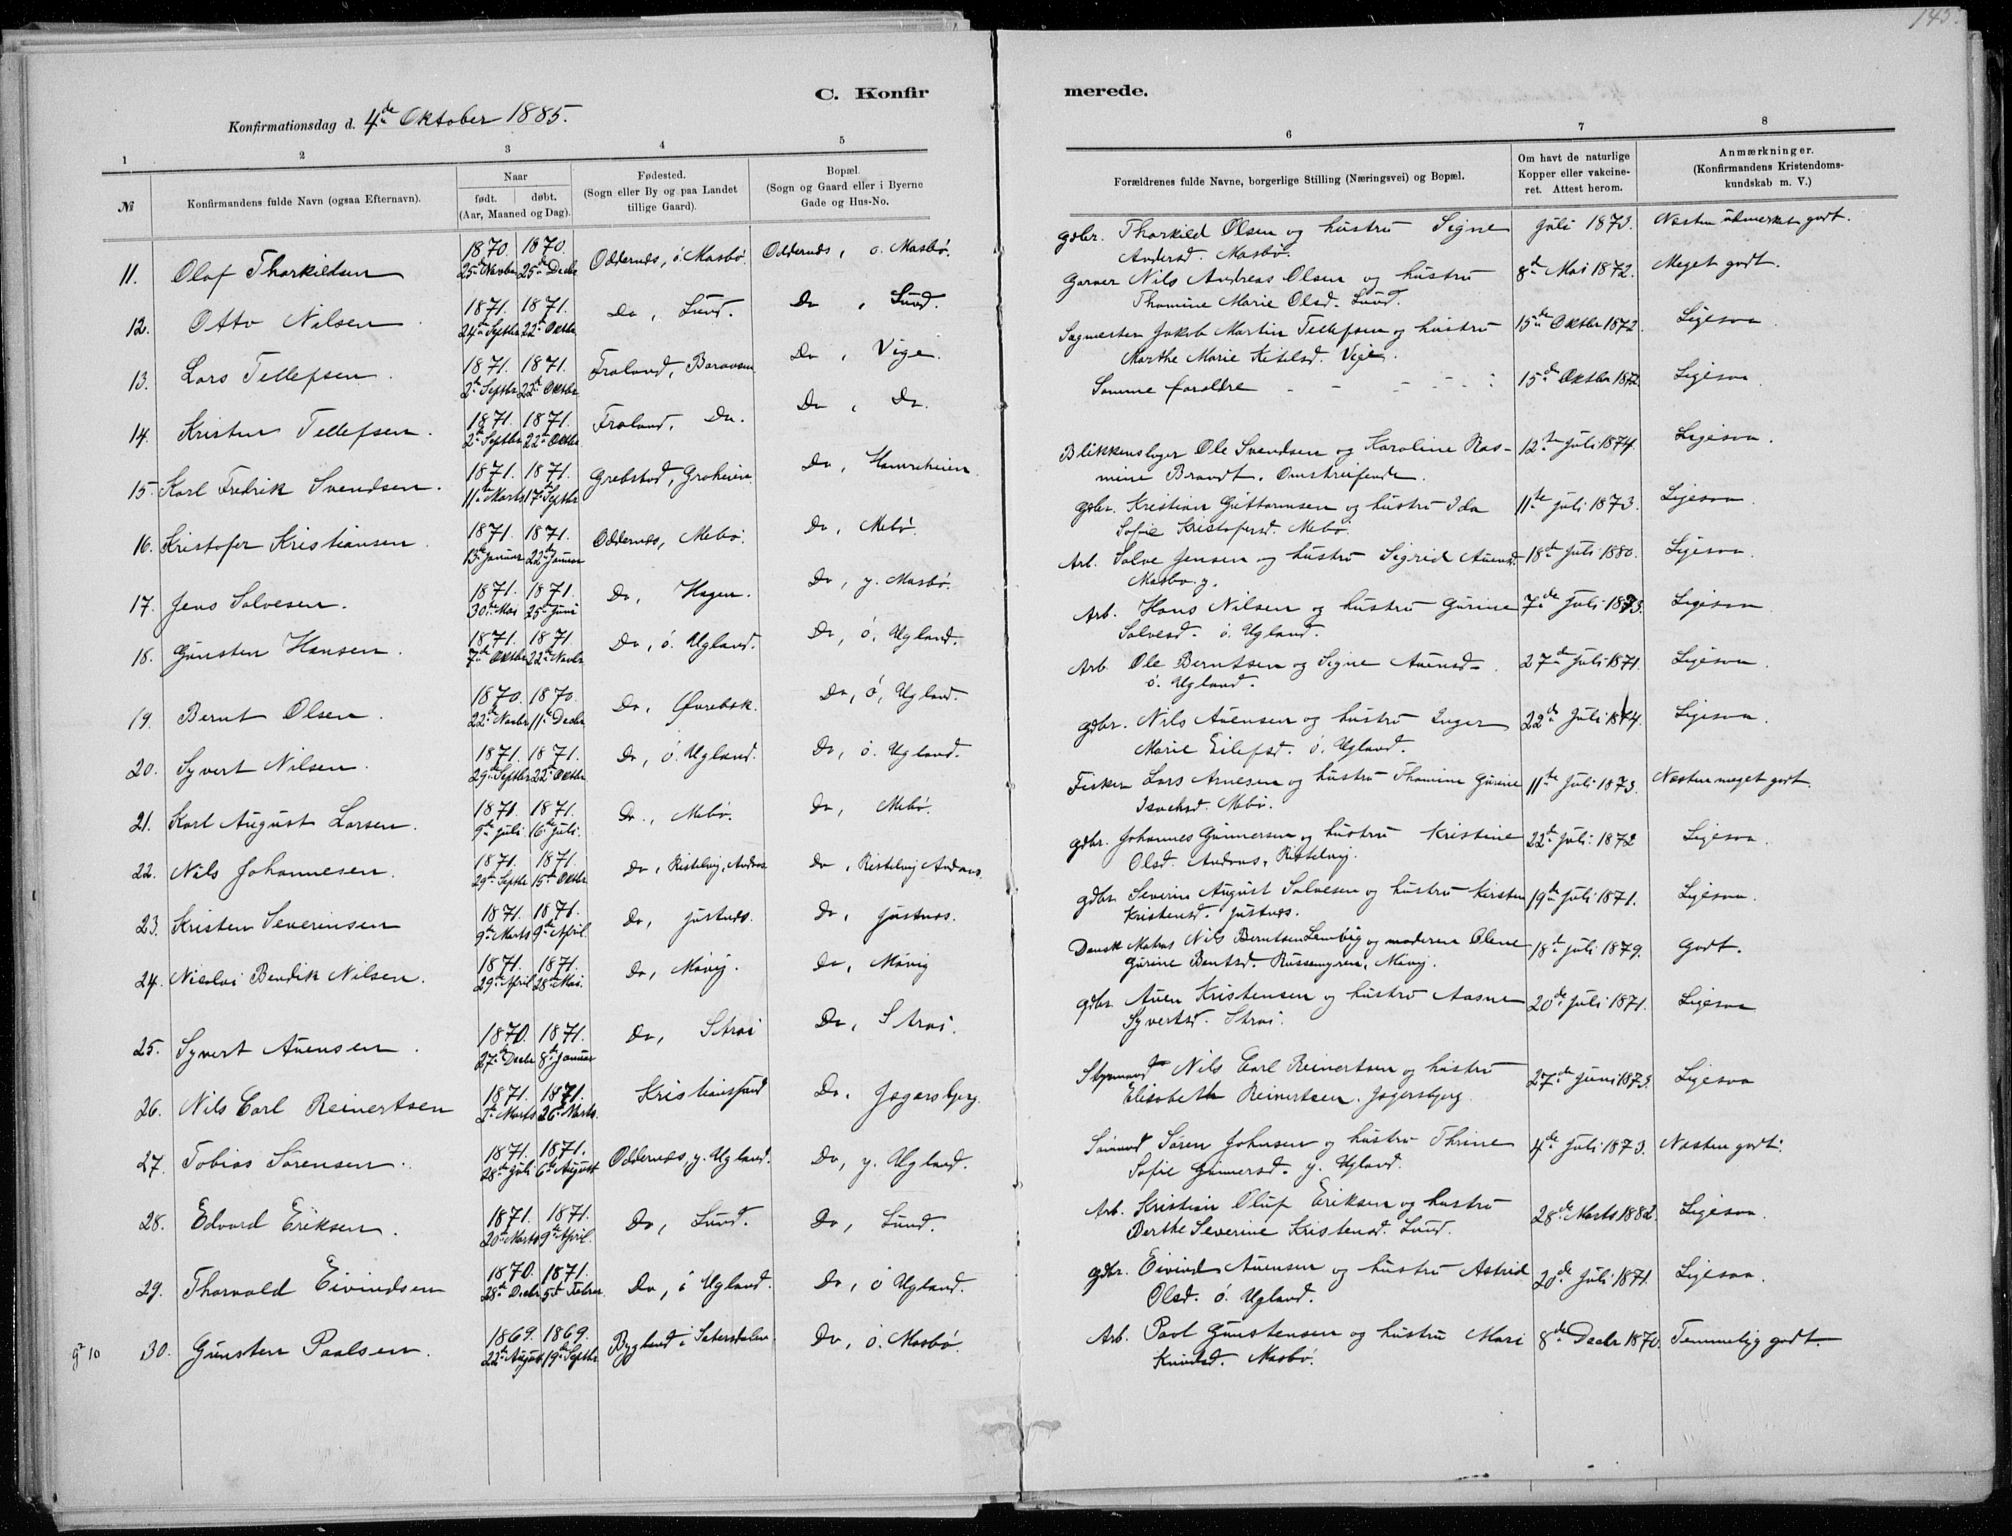 143.
C. Konfirmerede.
Konfirmationsdag d. 4de Oktober 1885.
1 2 3 4 5 6 7 8
№
Konfirmandens fulde Navn (ogsaa Efternavn).
Naar
født. døbt.
(Aar, Maaned og Dag).
Fødested.
(Sogn eller By og paa Landet
tillige Gaard).
Bopæl.
(Sogn og Gaard eller i Byerne
Gade og Hus-No.
Forældrenes fulde Navne, borgerlige Stilling (Næringsvei) og Bopæl.
Om havt de naturlige
Kopper eller vakcine-
ret. Attest herom.
Anmærkninger.
(Konfirmandens Kristendoms-
kundskab m. V.)
11. Olaf Thorkildsen 1870. 25de Novbr 1870. 25de Decbr Oddernæs, ö. Mosbö. Oddernæs, ö. Mosbö. gdbr. Thorkild Olsen og hustru Signe
Andersd. Mosbö. Juli 1873. Næsten udmerket godt.
12. Otto Nilsen 1871. 24de Septbr 1871. 22de Oktbr Do, Lund. Do, Lund. Garver Nils Andreas Olsen og hustru
Thomine Marie Olsd. Lund. 8de Mai 1872. Meget godt.
13. Lars Tellefsen. 1871. 2de Septbr 1871. 22de Oktbr Froland, Do, Vige. Sagmester Jakob Martin Tellefsen og hustru
Marthe Marie Ketelsd. Vige. 15de Oktbr 1872. Ligesaa
14. Kristen Tellefsen. 1871. 2de Septbr 1871. 22de Oktbr Froland, Do. Do, Do. Samme forældre 15de Oktbr 1872. Ligesaa
15. Karl Fredrik Svendsen. 1871. 11te Marts 1871. 17de Septbr Grebstad, Groheien Do, Hamreheien Blikkenslager Ole Svendsen og Karoline Ras-
mine Brandt. Omstreifende. 12te Juli 1874. Ligesaa.
16. Kristofer Kristiansen. 1871. 15de Januar 1871. 22de Januar Oddernæs, Mebö. Do, Mebö. gdbr. Kristian Guttormsen og hustru Ida
Sofie Kristofersd. Mebö. 11te Juli 1873. Ligesaa
17. Jens Salvesen. 1871. 30de Mai 1871. 25de Juni Do, Hagen. Do, y. Mosbö. Arb. Salve Jensen og hustru Sigrid Auensd.
Mosbö y. 18de Juli 1880. Ligesaa.
18. Gunsten Hansen. 1871. 7de Oktbr 1871. 22de Novbr Do, ö. Ugland. Do, ö. Ugland. Arb. Hans Nilsen og hustru Gurine
Salvesd. ö. Ugland. 7de Juli 1873. Ligesaa
19. Bernt Olsen. 1870. 22de Novbr 1870. 11te Decbr Do, Øvrebæk. Do, ö. Ugland. Arb Ole Berntsen og Signe Auensd.
ö. Ugland. 27de Juli 1871. Ligesaa
20. Syvert Nilsen. 1871. 29de Septbr 1871. 22de Oktbr Do, ö. Ugland. Do, ö. Ugland. gdbr. Nils Auensen og hustru Inger
Marie Eilefsd. ö. Ugland. 22de Juli 1874. Ligesaa.
21. Karl August Larsen. 1871. 9de Juli 1871. 16de Juli. Do, Mebö. Do, Mebö. Fisker Lars Arnesen og hustru Thomine Gurine
Isachsd. Mebö. 11te Juli 1873. Næsten meget godt.
22. Nils Johannesen. 1871. 29de Septbr 1871. 15de Oktbr Do, Ristelvig, Andøen Do, Ristelvig Andøen. gdbr. Johannes Gunnersen og hustru Kristine
Olsd. Andøen, Ristelvig. 22de Juli 1872 Ligesaa.
23. Kristen Severinsen 1871. 9de Marts 1871. 9de April. Do, Justnæs. Do, Justnæs. gdbr. Severin August Salvesen og hustru Kirsten
Kristensd. Justnæs. 19de Juli 1871. Ligesaa.
24. Nicolai Bendik Nilsen. 1871. 29de April 1871. 28de Mai. Do, Mövig. Do, Mövig Dansk Matros Nils Berntsen Lemvig og moderen Olene
Gurine Bentsd. Rossemyren, Mövig. 18de Juli 1879. Godt.
25. Syvert Auensen. 1870. 27de Decbr 1871. 8de Januar Do, Strai Do, Strai. gdbr. Auen Kristensen og hustru Aasne
Syvertsd. Strai. 20de Juli 1871. Ligesaa
26. Nils Carl Reinertsen 1871. Marts 1871. 26de Marts. Kristianssand Do, Jegersbjerg. Styrmand Nils Carl Reinertsen og hustru
Elisabeth Reinertsen. Jegersbjerg. 27de Juni 1873. Ligesaa
27. Tobias Sørensen. 1871. 28de Juli 1871. 6te August Oddernæs, y. Ugland. Do, y. Ugland. Sømand Søren Johnsen og hustru Thrine
Sofie Gunnersd. y. Ugland. 4de Juli 1873. Næsten godt.
28. Edvard Eriksen. 1871. 20de Marts 1871. 9de April. Do, Lund. Do, Lund. Arb. Kristian Oluf Eriksen og hustru
Berthe Severine Kristensd. Lund. 28de Marts 1882. Ligesaa.
29. Thorvald Eivindsen 1870. 28de Decbr 1871. 5te Febru. Do, ö Ugland. Do, ö Ugland. gdbr. Eivind Auensen og hustru Astrid
Olsd. ö. Ugland. 20de Juli 1871. Ligesaa.
gt 10 30. Gunsten Paalsen. 1869. 22de August 1869. 19de Septbr Bygland i Sætersdalen Do, ö. Mosbö. Arb. Paal Gunstensen og hustru Mari
Knudsd. Mosbö. 8de Decbr 1870. Temmelig godt.